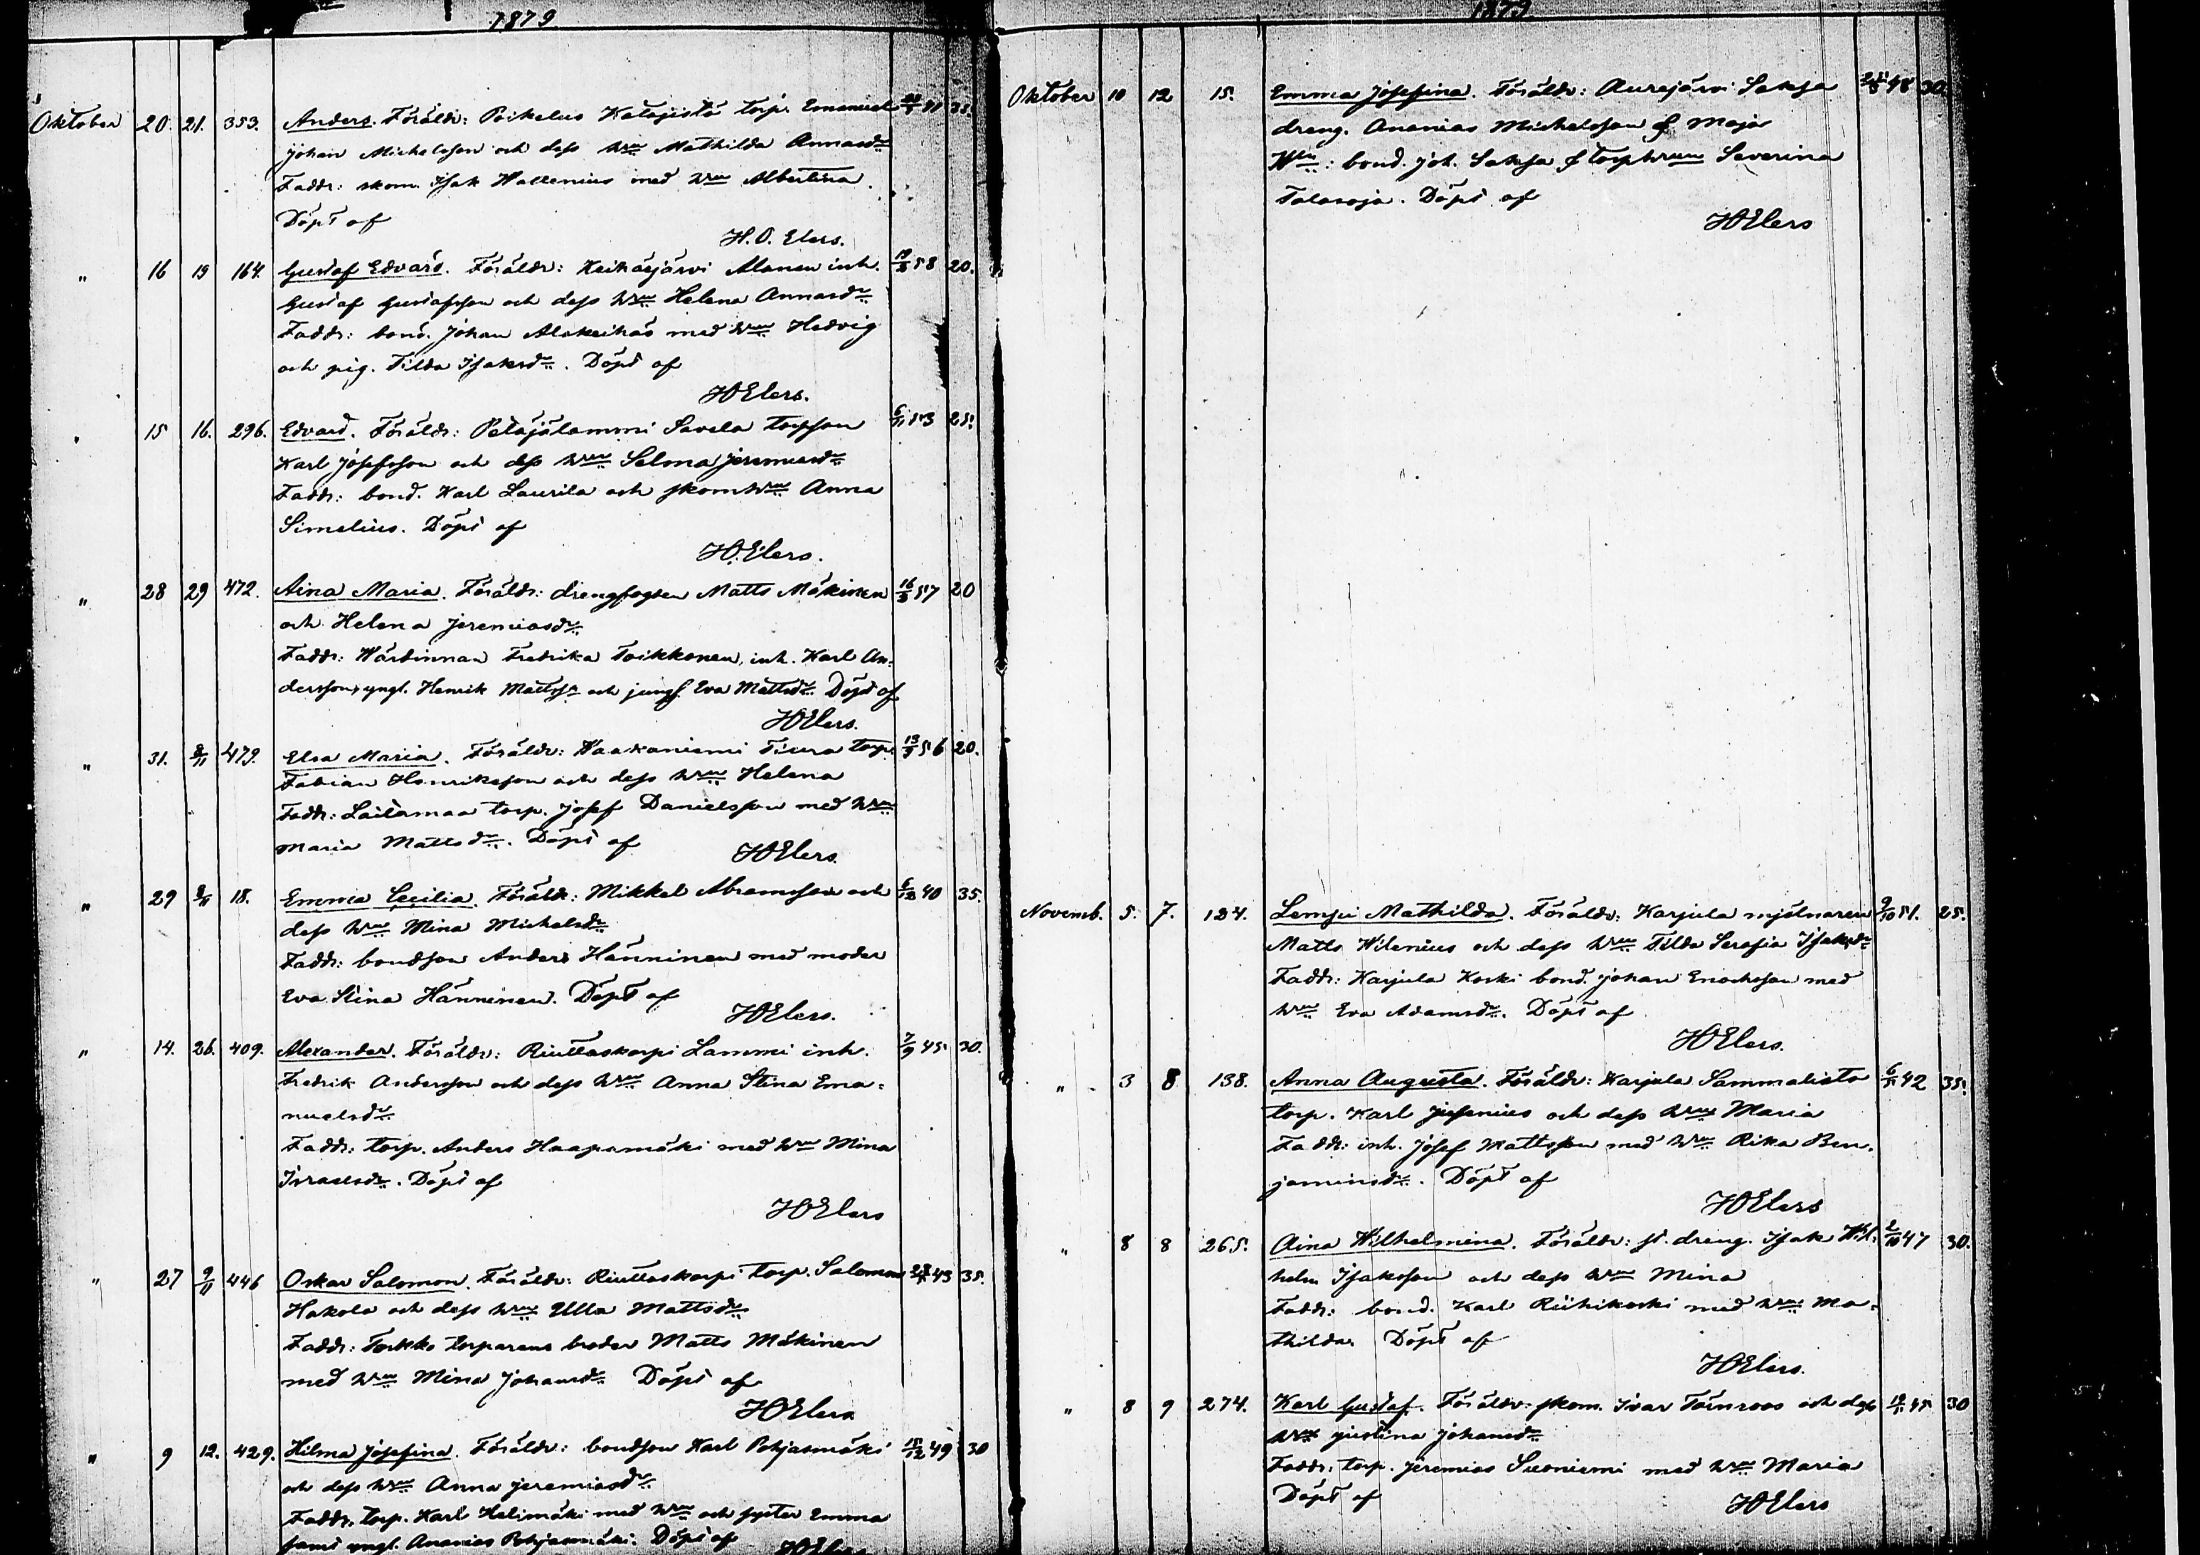 1879
Oktober 20. 21. 353. Anders. Föräldr: Poikelus Katajistö torp. Emanuel 35.
Johan Michelsson och dess hru Mathilda Annasdr
Faddr: skom. Isak Wallenius med hru Albertina.
Döpt af
H. O. Elers.
" 16 19 164. Gustaf Edvard. Föräldr: Keihäsjärvi Alanen inh. 58 20.
Gustaf Gustafsson och dess hru Helena Annasdr
Faddr: bond. Johan Alakeihäs med hru Hedvig
och pig. Tilda Isaksdr. Döpt af
HOElers.
" 15 16. 296. Edvard. Föräldr: Petäjälammi Savela torpson 6/11 53 25.
Karl Josefsson och dess hru Selma Jeremiasdr
Faddr: bond. Karl Laurila och skomhru Anna
Simelius. Döpt af
H.O.Elers.
" 28 29 472. Aina Maria. Föräldr: drengfogden Matts Mäkinen 57 20
och Helena Jeremiasdr
Faddr: Wärdinnan Fredrika Toikkonen, inh. Karl An-
dersson, yngl. Henrik Mattss och jungf. Eva Mattsdr. Döpt af
HOElers.
" 31. 2/11 479. Elsa Maria. Föräldr: Haakaniemi Tiura torp. 56 20.
Fabian Henriksson och dess hru Helena
Faddr: Lailamaa torp. Josef Danielsson med hru
Maria Mattsdr. Döpt af
HOElers.
" 29 2/11 18. Emma Cecilia. Föräldr: Mikkel Abramsson och 6/12 40 35.
dess hru Mina Michelsdr
Faddr: bondson Anders Hänninen med moder
Eva Stina Hänninen. Döpt af
HOElers.
" 14. 26. 409. Alexander. Föräldr: Riuttaskorpi Lammi inh. 7/9 45. 30.
Fredrik Andersson och dess hru Anna Stina Ema-
nuelsdr
Faddr: torp. Anders Haapamäki med hru Mina
Israelsdr. Döpt af
HOElers
" 27 9/11 446 Oskar Salomon. Föräldr: Riuttaskorpi torp. Salomon 43 35.
Hakola och dess hru Ulla Mattsdr
Faddr: Torkko torparens broder Matts Mäkinen
med hru Mina Johansdr Döpt af
HOElers
" 9 12. 429. Hilma Josefina. Föräldr: bondson Karl Pohjasmäki 15/12 49 30
och dess hru Anna Jeremiasdr
Faddr. torp. Karl Helimäki med hru och syster Emma
samt yngl. Ananias Pohjasmäki. Döpt af
HOElers
1879.
Oktober 10 12 15. Emma Josefina. Föräldr: Aurejärvi Saksa 48 30.
dreng. Ananias Michelsson & Maja
Wtn: bond. Joh. Saksa & torphrun Severina
Talasoja. Döpt af
HOElers
Novemb. 5. 7. 124. Lempi Mathilda. Föräldr: Karjula mjölnaren 9/10 51. 25.
Matts Wilenius och dess hru Tilda Serafia Isaksdr
Faddr: Karjula Koski bond. Johan Enochsson med
hru Eva Adamsdr. Döpt af
HOElers.
" 3 8 138. Anna Augusta. Föräldr: Karjula Sammalisto 42 35.
torp. Karl Jusenius och dess hru Maria
Faddr: inh. Josef Mattsson med hru Rika Ben-
jaminsdr. Döpt af
HOElers
" 8 8 265. Aina Wilhelmina. Föräldr: st. dreng. Isak Wil- 2/10 47 30.
helm Isaksson och dess hru Mina
Faddr: bond. Karl Riihikoski med hru Ma-
thilda. Döpt af
HOElers.
" 8 9 274. Karl Gustaf. Föräldr: skom. Ivar Törnroos och dess 45 30
hru Justina Johansdr
Faddr. torp. Jeremias Susniemi med hru Maria
Döpt af
HOElers